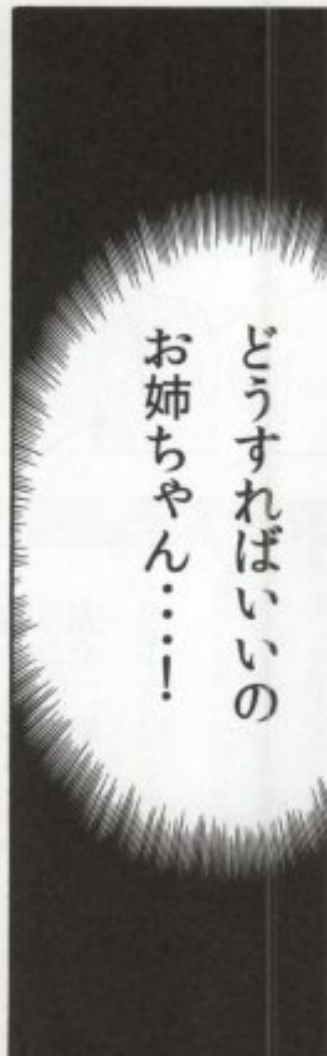 どうすればいいの
お姉ちゃん……！